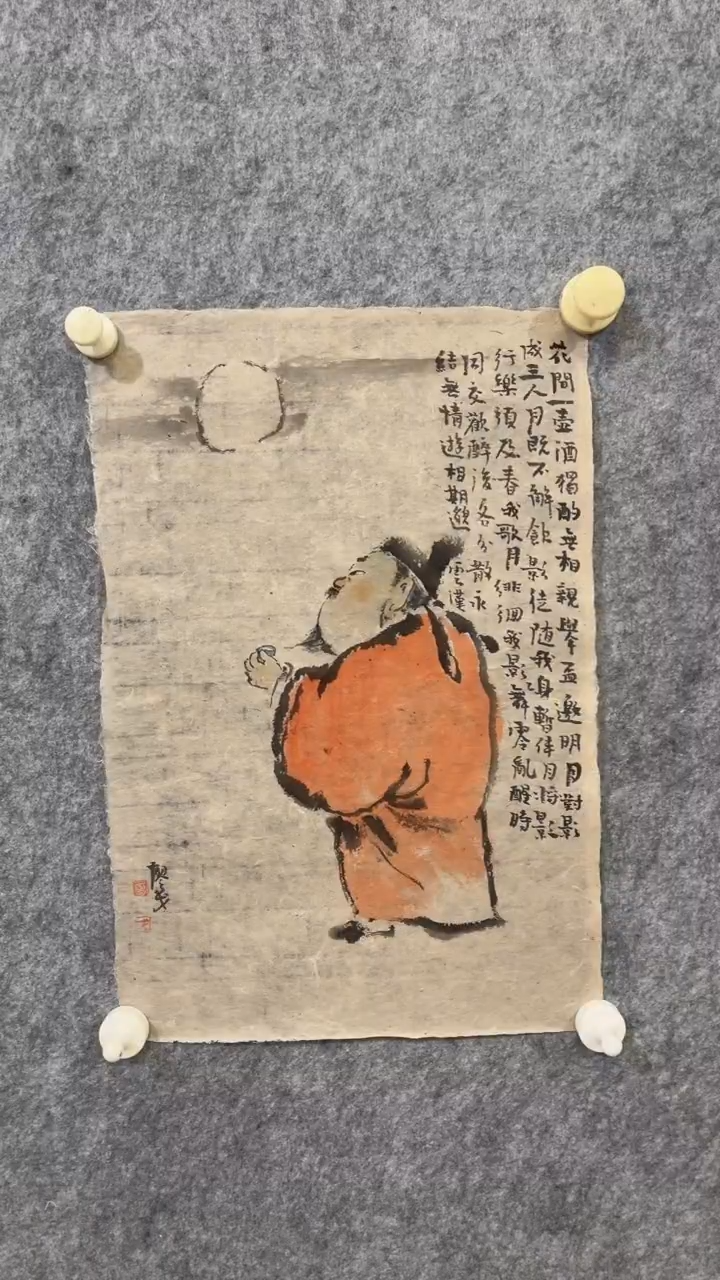 花間一壺酒獨酌無相親舉盃邀明月對影
成三人月既不解飲影徒随我身暫伴月将影
行樂須及春我歌月徘徊我影舞零亂醒時
同交歡醉後各分散永
結無情遊相期邈雲漢